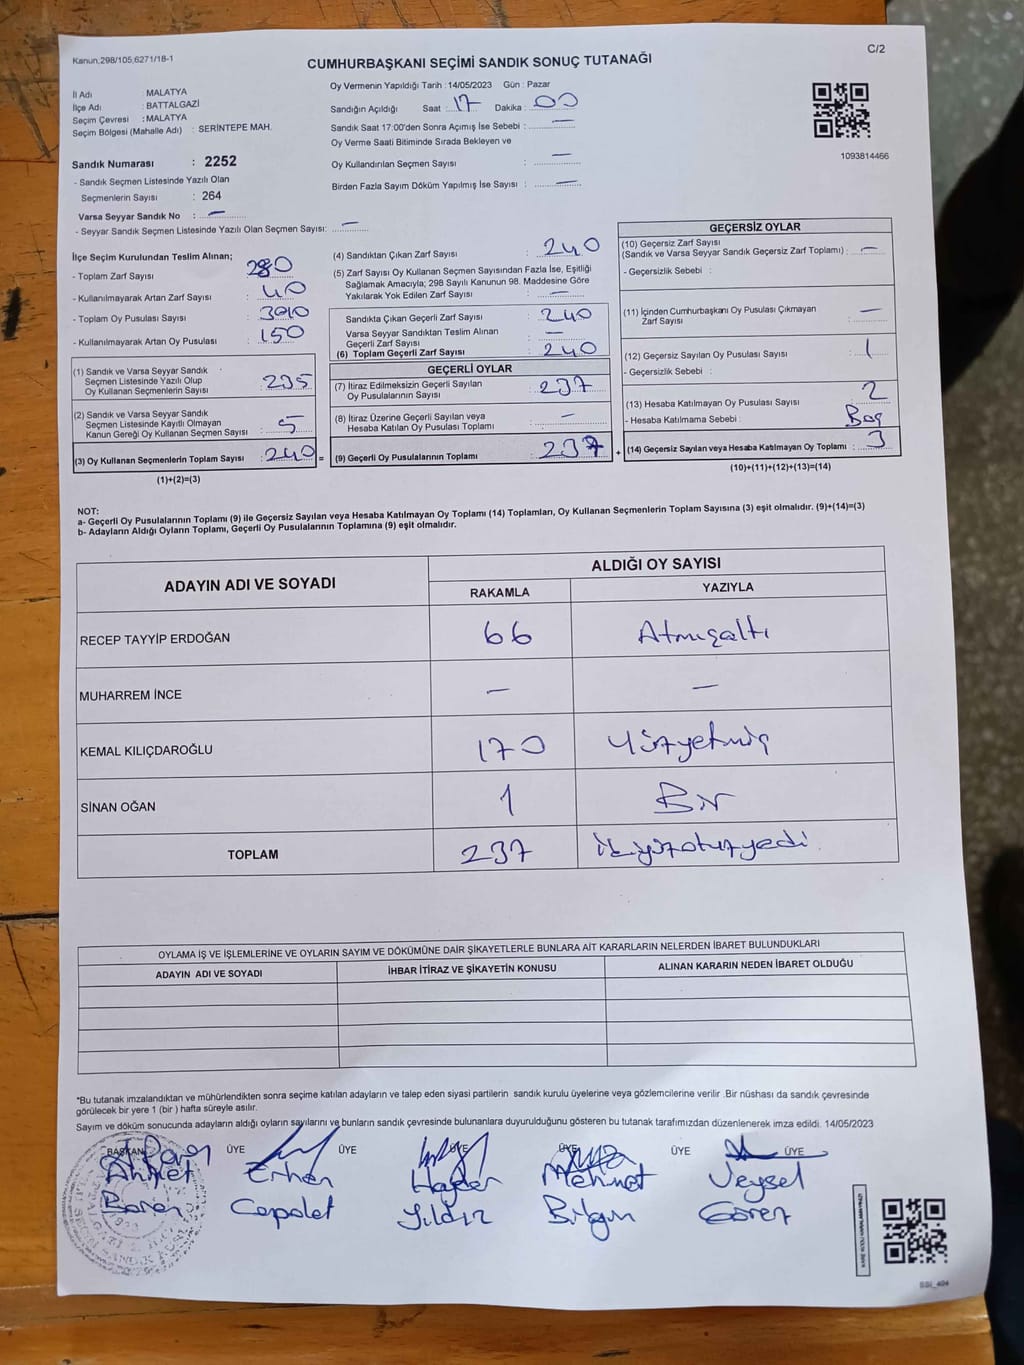 Kanun,298/105,6271/18-1
C/2
CUMHURBAŞKANI SEÇİMİ SANDIK SONUÇ TUTANAĞI
İl Adı : MALATYA
İlçe Adı : BATTALGAZİ
Seçim Çevresi : MALATYA
Seçim Bölgesi (Mahalle Adı) : SERİNTEPE MAH.
Oy Vermenin Yapıldığı Tarih : 14/05/2023 Gün : Pazar
Sandığın Açıldığı Saat : 17 Dakika : 00
Sandık Saat 17:00'den Sonra Açımış İse Sebebi : —
Oy Verme Saati Bitiminde Sırada Bekleyen ve
Oy Kullandırılan Seçmen Sayısı : —
Birden Fazla Sayım Döküm Yapılmış İse Sayısı : —
1093814466
Sandık Numarası : 2252
- Sandık Seçmen Listesinde Yazılı Olan
Seçmenlerin Sayısı : 264
Varsa Seyyar Sandık No : —
- Seyyar Sandık Seçmen Listesinde Yazılı Olan Seçmen Sayısı: —
İlçe Seçim Kurulundan Teslim Alınan;
- Toplam Zarf Sayısı 280
- Kullanılmayarak Artan Zarf Sayısı : 40
- Toplam Oy Pusulası Sayısı :
- Kullanılmayarak Artan Oy Pusulası : 150
(1) Sandık ve Varsa Seyyar Sandık
Seçmen Listesinde Yazılı Olup
Oy Kullanan Seçmenlerin Sayısı : 235
(2) Sandık ve Varsa Seyyar Sandık
Seçmen Listesinde Kayıtlı Olmayan
Kanun Gereği Oy Kullanan Seçmen Sayısı : 5
(3) Oy Kullanan Seçmenlerin Toplam Sayısı : 240 =
(1)+(2)=(3)
(4) Sandıktan Çıkan Zarf Sayısı : 240
(5) Zarf Sayısı Oy Kullanan Seçmen Sayısından Fazla İse, Eşitliği
Sağlamak Amacıyla; 298 Sayılı Kanunun 98. Maddesine Göre
Yakılarak Yok Edilen Zarf Sayısı : —
Sandıkta Çıkan Geçerli Zarf Sayısı : 240
Varsa Seyyar Sandıktan Teslim Alınan
Geçerli Zarf Sayısı : —
(6) Toplam Geçerli Zarf Sayısı : 240
GEÇERLİ OYLAR
(7) İtiraz Edilmeksizin Geçerli Sayılan
Oy Pusulalarının Sayısı : 237
(8) İtiraz Üzerine Geçerli Sayılan veya
Hesaba Katılan Oy Pusulası Toplamı : —
(9) Geçerli Oy Pusulalarının Toplamı : 237 +
GEÇERSİZ OYLAR
(10) Geçersiz Zarf Sayısı
(Sandık ve Varsa Seyyar Sandık Geçersiz Zarf Toplamı) : —
- Geçersizlik Sebebi :
(11) İçinden Cumhurbaşkanı Oy Pusulası Çıkmayan
Zarf Sayısı : —
(12) Geçersiz Sayılan Oy Pusulası Sayısı : 1
- Geçersizlik Sebebi :
(13) Hesaba Katılmayan Oy Pusulası Sayısı : 2
- Hesaba Katılmama Sebebi : Boş
(14) Geçersiz Sayılan veya Hesaba Katılmayan Oy Toplamı : 3
(10)+(11)+(12)+(13)=(14)
NOT:
a- Geçerli Oy Pusulalarının Toplamı (9) ile Geçersiz Sayılan veya Hesaba Katılmayan Oy Toplamı (14) Toplamları, Oy Kullanan Seçmenlerin Toplam Sayısına (3) eşit olmalıdır. (9)+(14)=(3)
b- Adayların Aldığı Oyların Toplamı, Geçerli Oy Pusulalarının Toplamına (9) eşit olmalıdır.
ADAYIN ADI VE SOYADI ALDIĞI OY SAYISI
RAKAMLA YAZIYLA
RECEP TAYYİP ERDOĞAN 66 Atmışaltı
MUHARREM İNCE — —
KEMAL KILIÇDAROĞLU 170 Yüzyetmiş
SİNAN OĞAN 1 Bir
TOPLAM 237 ikiyüzotuzyedi.
OYLAMA İŞ VE İŞLEMLERİNE VE OYLARIN SAYIM VE DÖKÜMÜNE DAİR ŞİKAYETLERLE BUNLARA AİT KARARLARIN NELERDEN İBARET BULUNDUKLARI
ADAYIN ADI VE SOYADI İHBAR İTİRAZ VE ŞİKAYETİN KONUSU ALINAN KARARIN NEDEN İBARET OLDUĞU
*Bu tutanak imzalandıktan ve mühürlendikten sonra seçime katılan adayların ve talep eden siyasi partilerin sandık kurulu üyelerine veya gözlemcilerine verilir .Bir nüshası da sandık çevresinde
görülecek bir yere 1 (bir ) hafta süreyle asılır.
Sayım ve döküm sonucunda adayların aldığı oyların sayılarını ve bunların sandık çevresinde bulunanlara duyurulduğunu gösteren bu tutanak tarafımızdan düzenlenerek imza edildi. 14/05/2023
BAŞKAN ÜYE ÜYE ÜYE ÜYE ÜYE ÜYE
Ahmet Erhan Haydar Mehmet Veysel
Boran Cepolet Yıldız Bilgin Gören